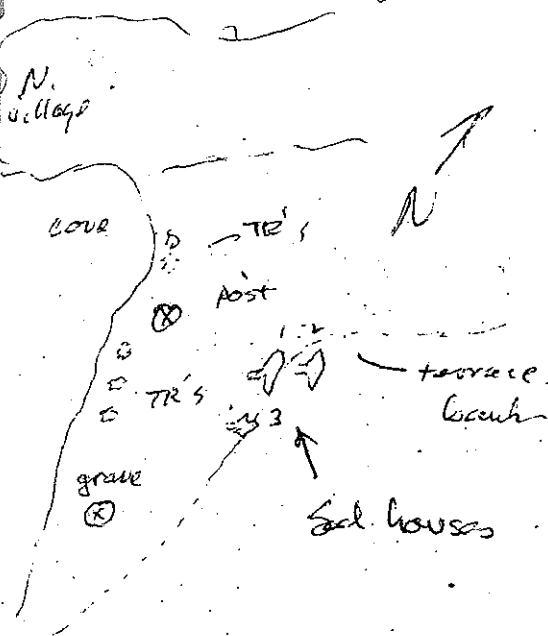 N.
village
cove
TR's
N
post
1 2
terrace
bank
TR's
3
grave
Sod houses